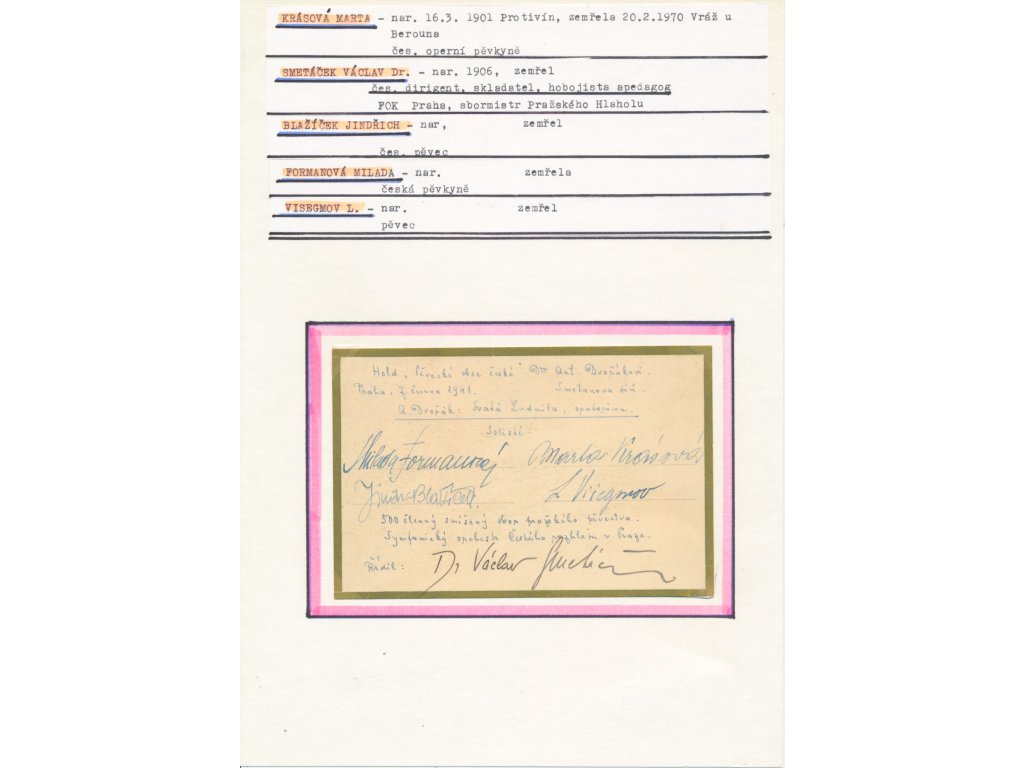 KRÁSOVÁ MARTA - nar. 16.3. 1901 Protivín, zemřela 20.2.1970 Vráž u
Berouna
čes. operní pěvkyně
SMETÁČEK VÁCLAV Dr. - nar. 1906, zemřel
čes. dirigent, skladatel, hobojista apedagog
FOK Praha, sbormistr Pražského Hlaholu
BLAŽÍČEK JINDŘICH - nar, zemřel
čes. pěvec
FORMANOVÁ MILADA - nar. zemřela
česká pěvkyně
VISEGMOV L. - nar. zemřel
pěvec
Hold „Pěvecké obce české" Dru Ant. Dvořákovi.
Praha, 7. června 1941. Smetanova síň.
A. Dvořák: Svatá Ludmila, oratorium.
Solisté:
Milada Formanová Marta Krásová
Jindra Blažíček L Višegonov
500 členný smíšený sbor pražského pěvectva.
Symfonický orchestr Českého rozhlasu v Praze.
Řídil: Dr Václav Smetáček